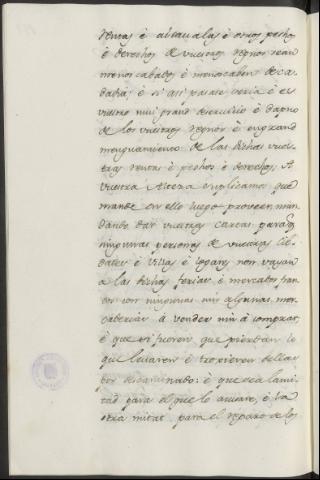 rentas é alcavalas é otros pechos
é derechos de vuestros regnos sean
menoscabados é menoscaben de ca-
da dia; é si asi pasase seria é es
vuestro mui grand deservicio é dapno
de los vuestros regnos é en grand
menguamiento de las dichas vues-
tras rentas é pechos é derechos; A
vuestra Alteza suplicamos que
mande en ello luego proveer, man-
dando dar vuestras cartas para q.
ningunas personas de vuestras Cib-
dades é villas é logares non vayan
a las dichas ferias, é mercados fran-
cos con ningunas nin algunas mer-
cadurias á vender nin á comprar,
é que si fueren que pierdan lo
que levaren é troxieren dellas
por descaminado: é que sea la mi-
tad para el que lo acusare, é la
otra mitat para el reparo de los